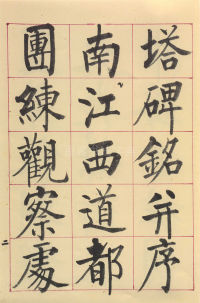 塔碑銘并序
南江西道都
團練觀察處
二